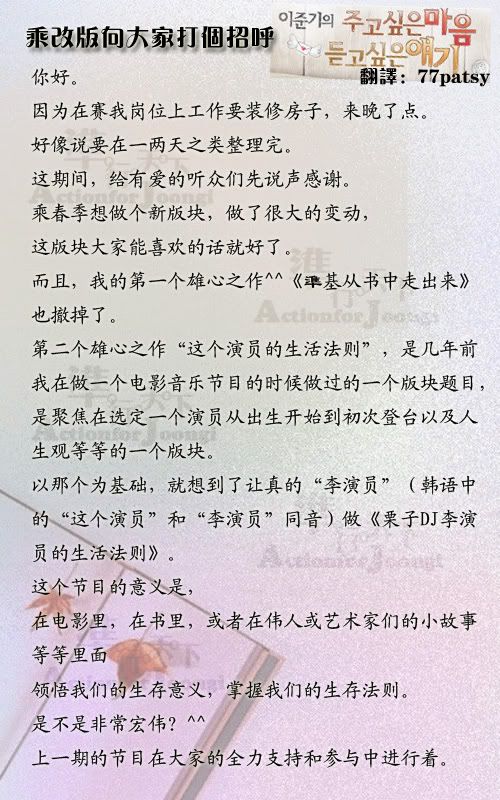 乘改版向大家打個招呼
이준기의
주고싶은마음
듣고싶은얘기
翻譯：77patsy
你好。
因为在赛我岗位上工作要装修房子，来晚了点。
好像说要在一两天之类整理完。
这期间，给有爱的听众们先说声感谢。
乘春季想做个新版块，做了很大的变动，
这版块大家能喜欢的话就好了。
而且，我的第一个雄心之作^^《準基从书中走出来》
也撤掉了。
第二个雄心之作“这个演员的生活法则”，是几年前
我在做一个电影音乐节目的时候做过的一个版块题目，
是聚焦在选定一个演员从出生开始到初次登台以及人
生观等等的一个版块。
以那个为基础，就想到了让真的“李演员”（韩语中
的“这个演员”和“李演员”同音）做《栗子DJ李演
员的生活法则》。
这个节目的意义是，
在电影里，在书里，或者在伟人或艺术家们的小故事
等等里面
领悟我们的生存意义，掌握我们的生存法则。
是不是非常宏伟？^^
上一期的节目在大家的全力支持和参与中进行着。
準行天下
ActionforJoongi